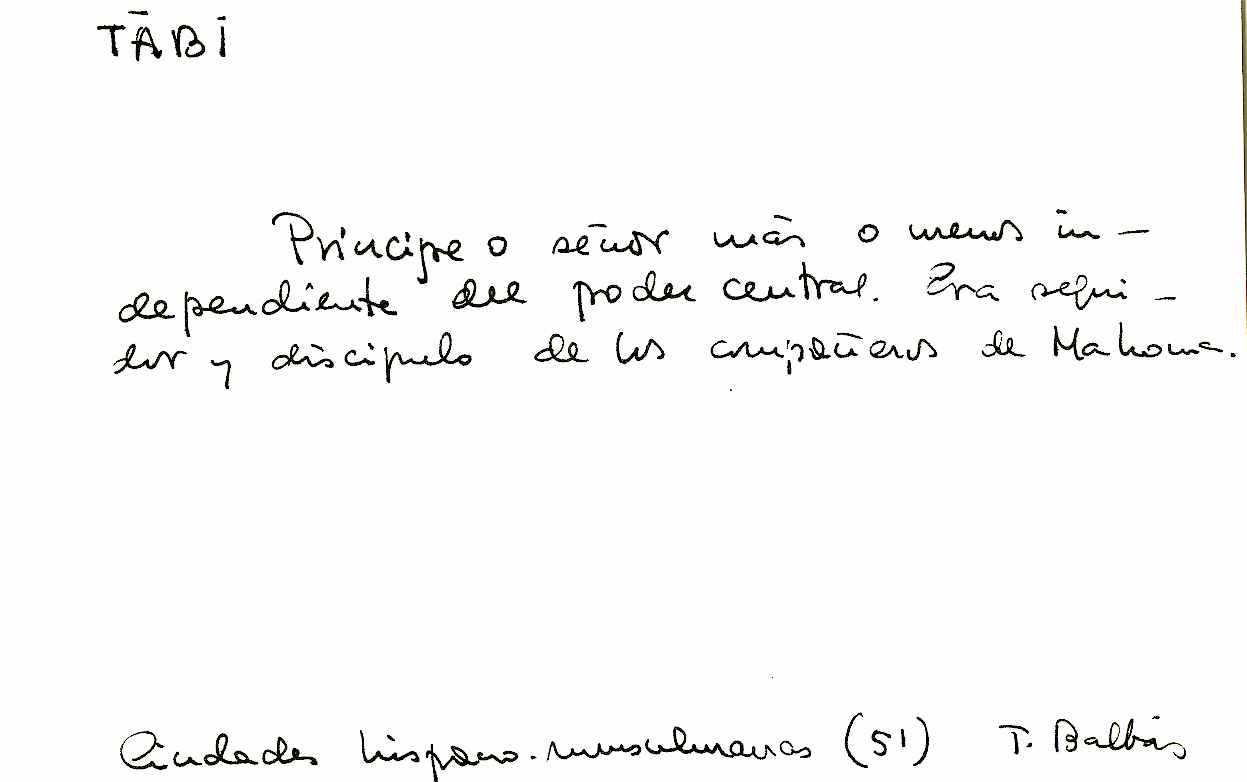 TĀBĪ
Príncipe o señor más o menos in-
dependiente del poder central. Era segui-
dor y discípulo de los compañeros de Mahoma.
Ciudades hispano-musulmanas (51) T. Balbás